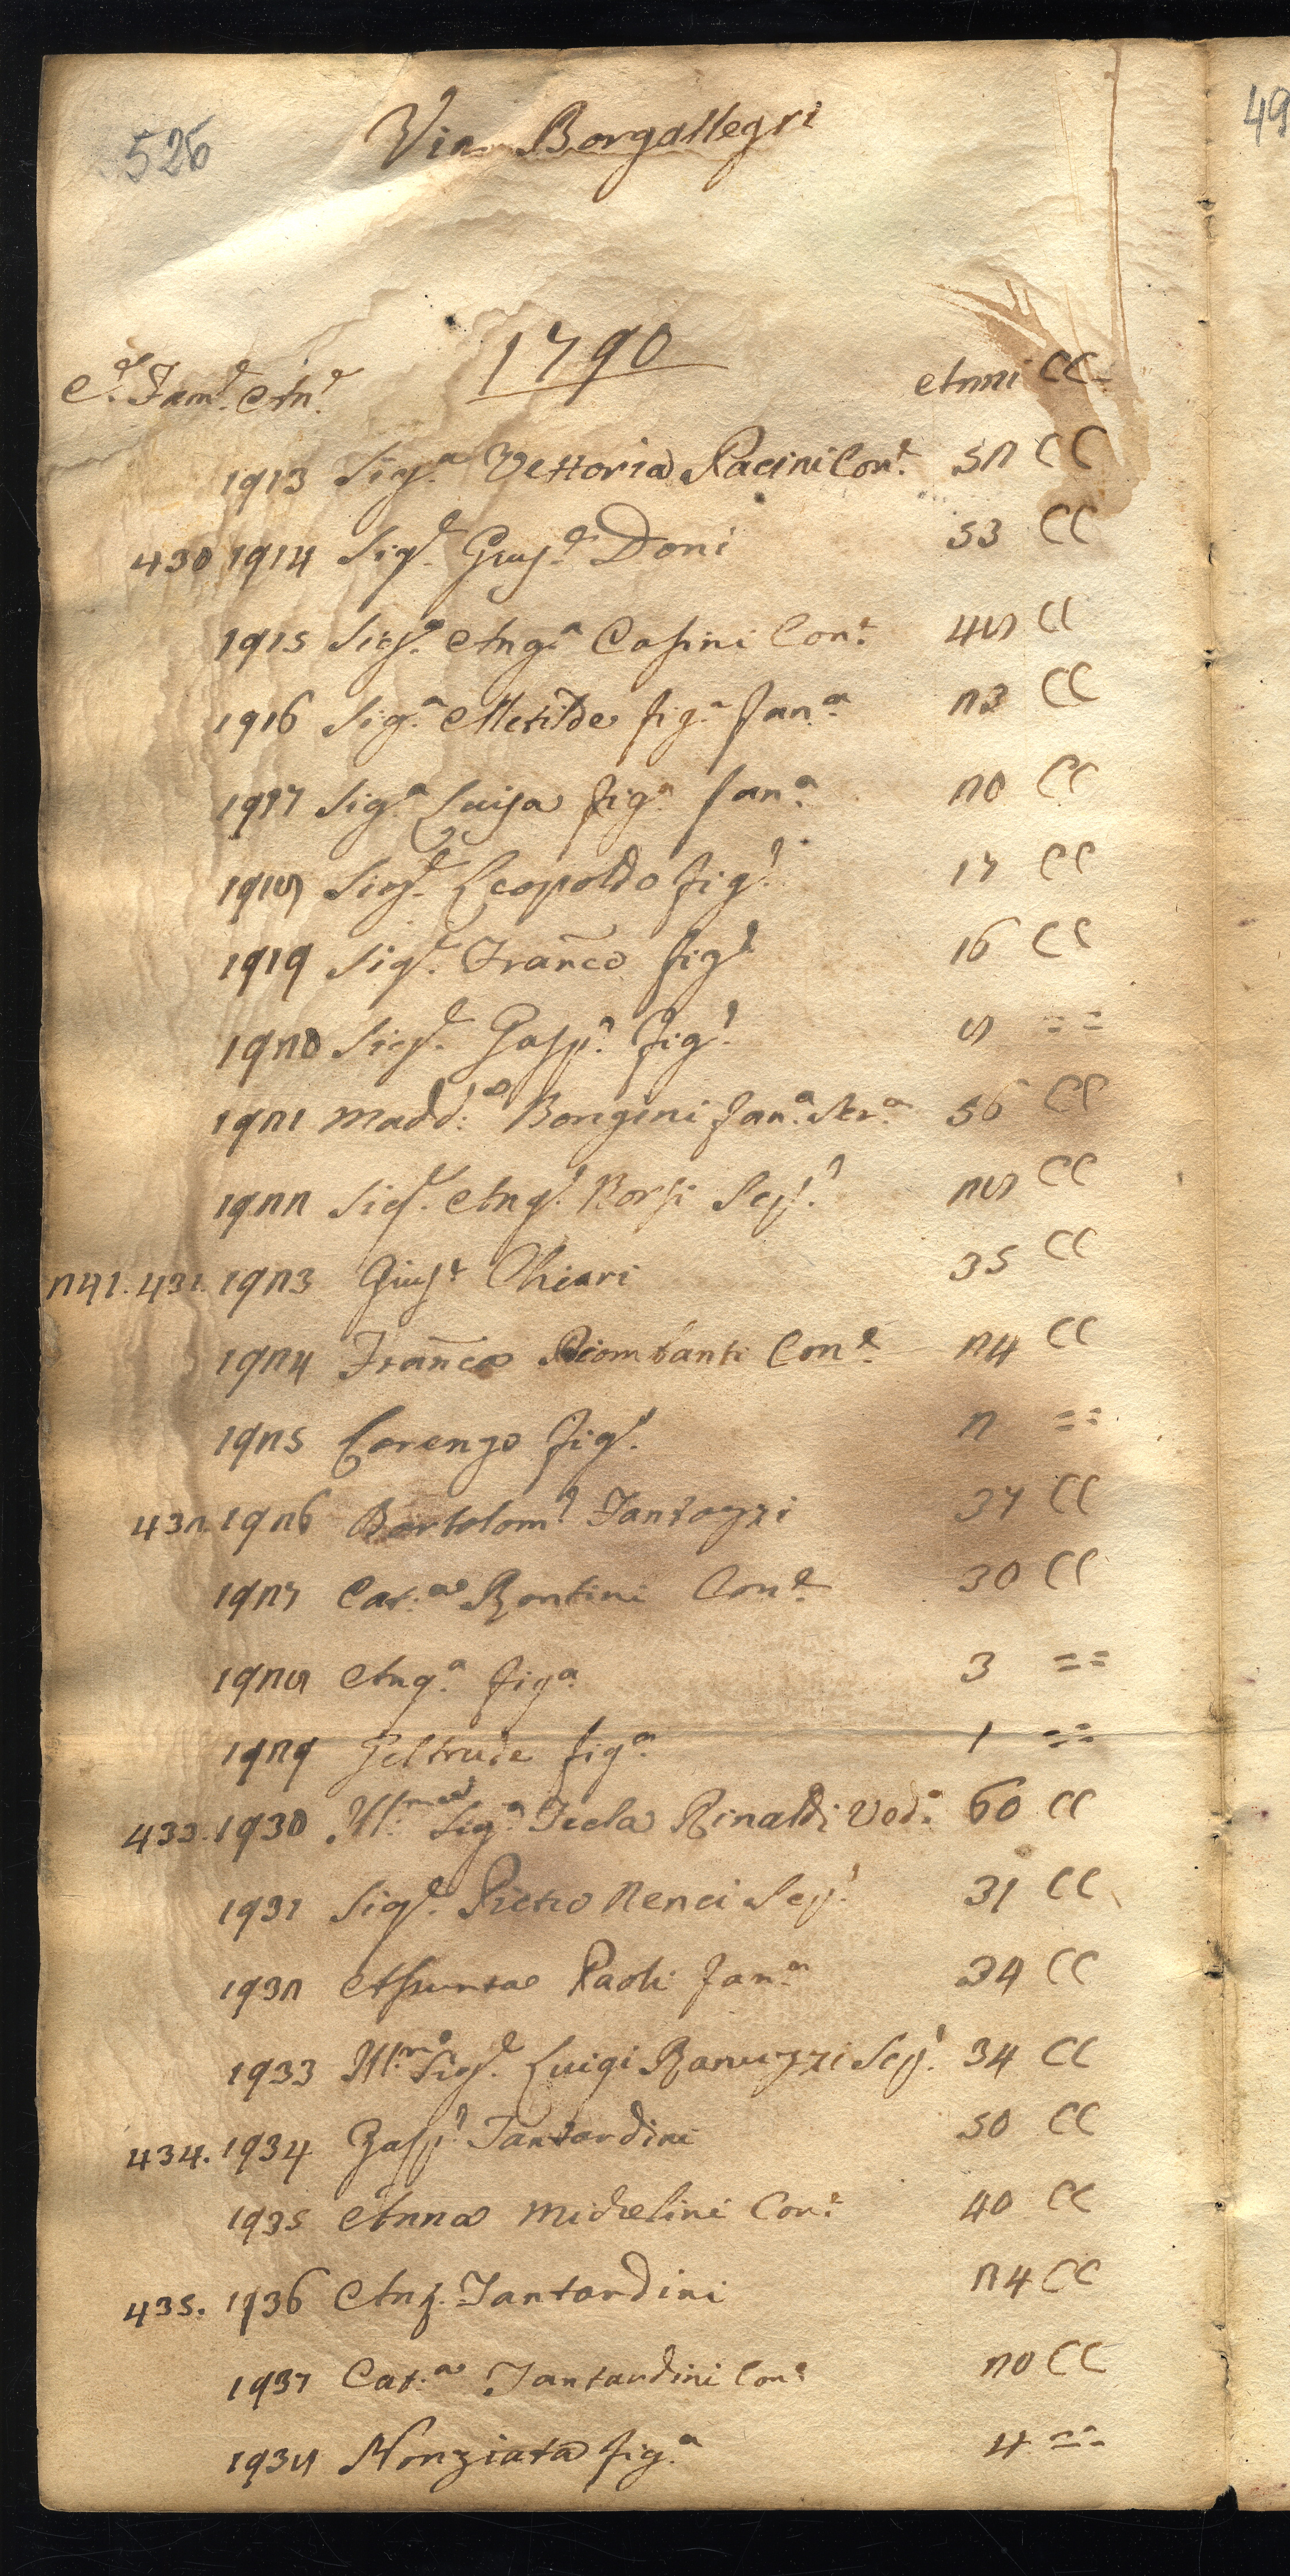 526
49
Via Borgallegri
1790
C.e Fam.e An.e Anni CC
1913 Sig.a Vettoria Pacini Con.e 52 CC
430 1914 Sig.e Gius.e Doni 53 CC
1915 Sig.a Ang.a Casini Con.e 48 CC
1916 Sig.a Metilde fig.a fan.a 23 CC
1917 Sig.a Luisa fig.a fan.a 20 CC
1918 Sig.e Leopoldo fig.o 17 CC
1919 Sig.e Franco fig.o 16 CC
1920 Sig.e Gasp.e fig.o 8 ==
1921 Madd.a Borgini fan.a Ser.a 56 CC
1922 Sig.e Ang.o Borsi Scp.o 28 CC
241. 431. 1923 Gius.e Chiari 35 CC
1924 Franca Piombanti Con.e 24 CC
1925 Lorenzo fig.o 2 ==
432. 1926 Bartolom.o Fantozzi 37 CC
1927 Cat.a Bontini Con.e 30 CC
1928 Ang.a fig.a 3 ==
1929 Geltrude fig.a 1 ==
433. 1930 Ill.ma Sig.a Tecla Rinaldi Ved.a 60 CC
1931 Sig.e Pietro Nenci Scp.o 31 CC
1932 Assunta Paoli fan.a 34 CC
1933 Ill.mo Sig.e Luigi Ranuzzi Scp.o 34 CC
434. 1934 Gasp.e Tantardini 50 CC
1935 Anna Michelini Con.e 40 CC
435. 1936 Ant. Tantardini 24 CC
1937 Cat.a Tantardini Con.e 20 CC
1938 Nonziata fig.a 4 ==